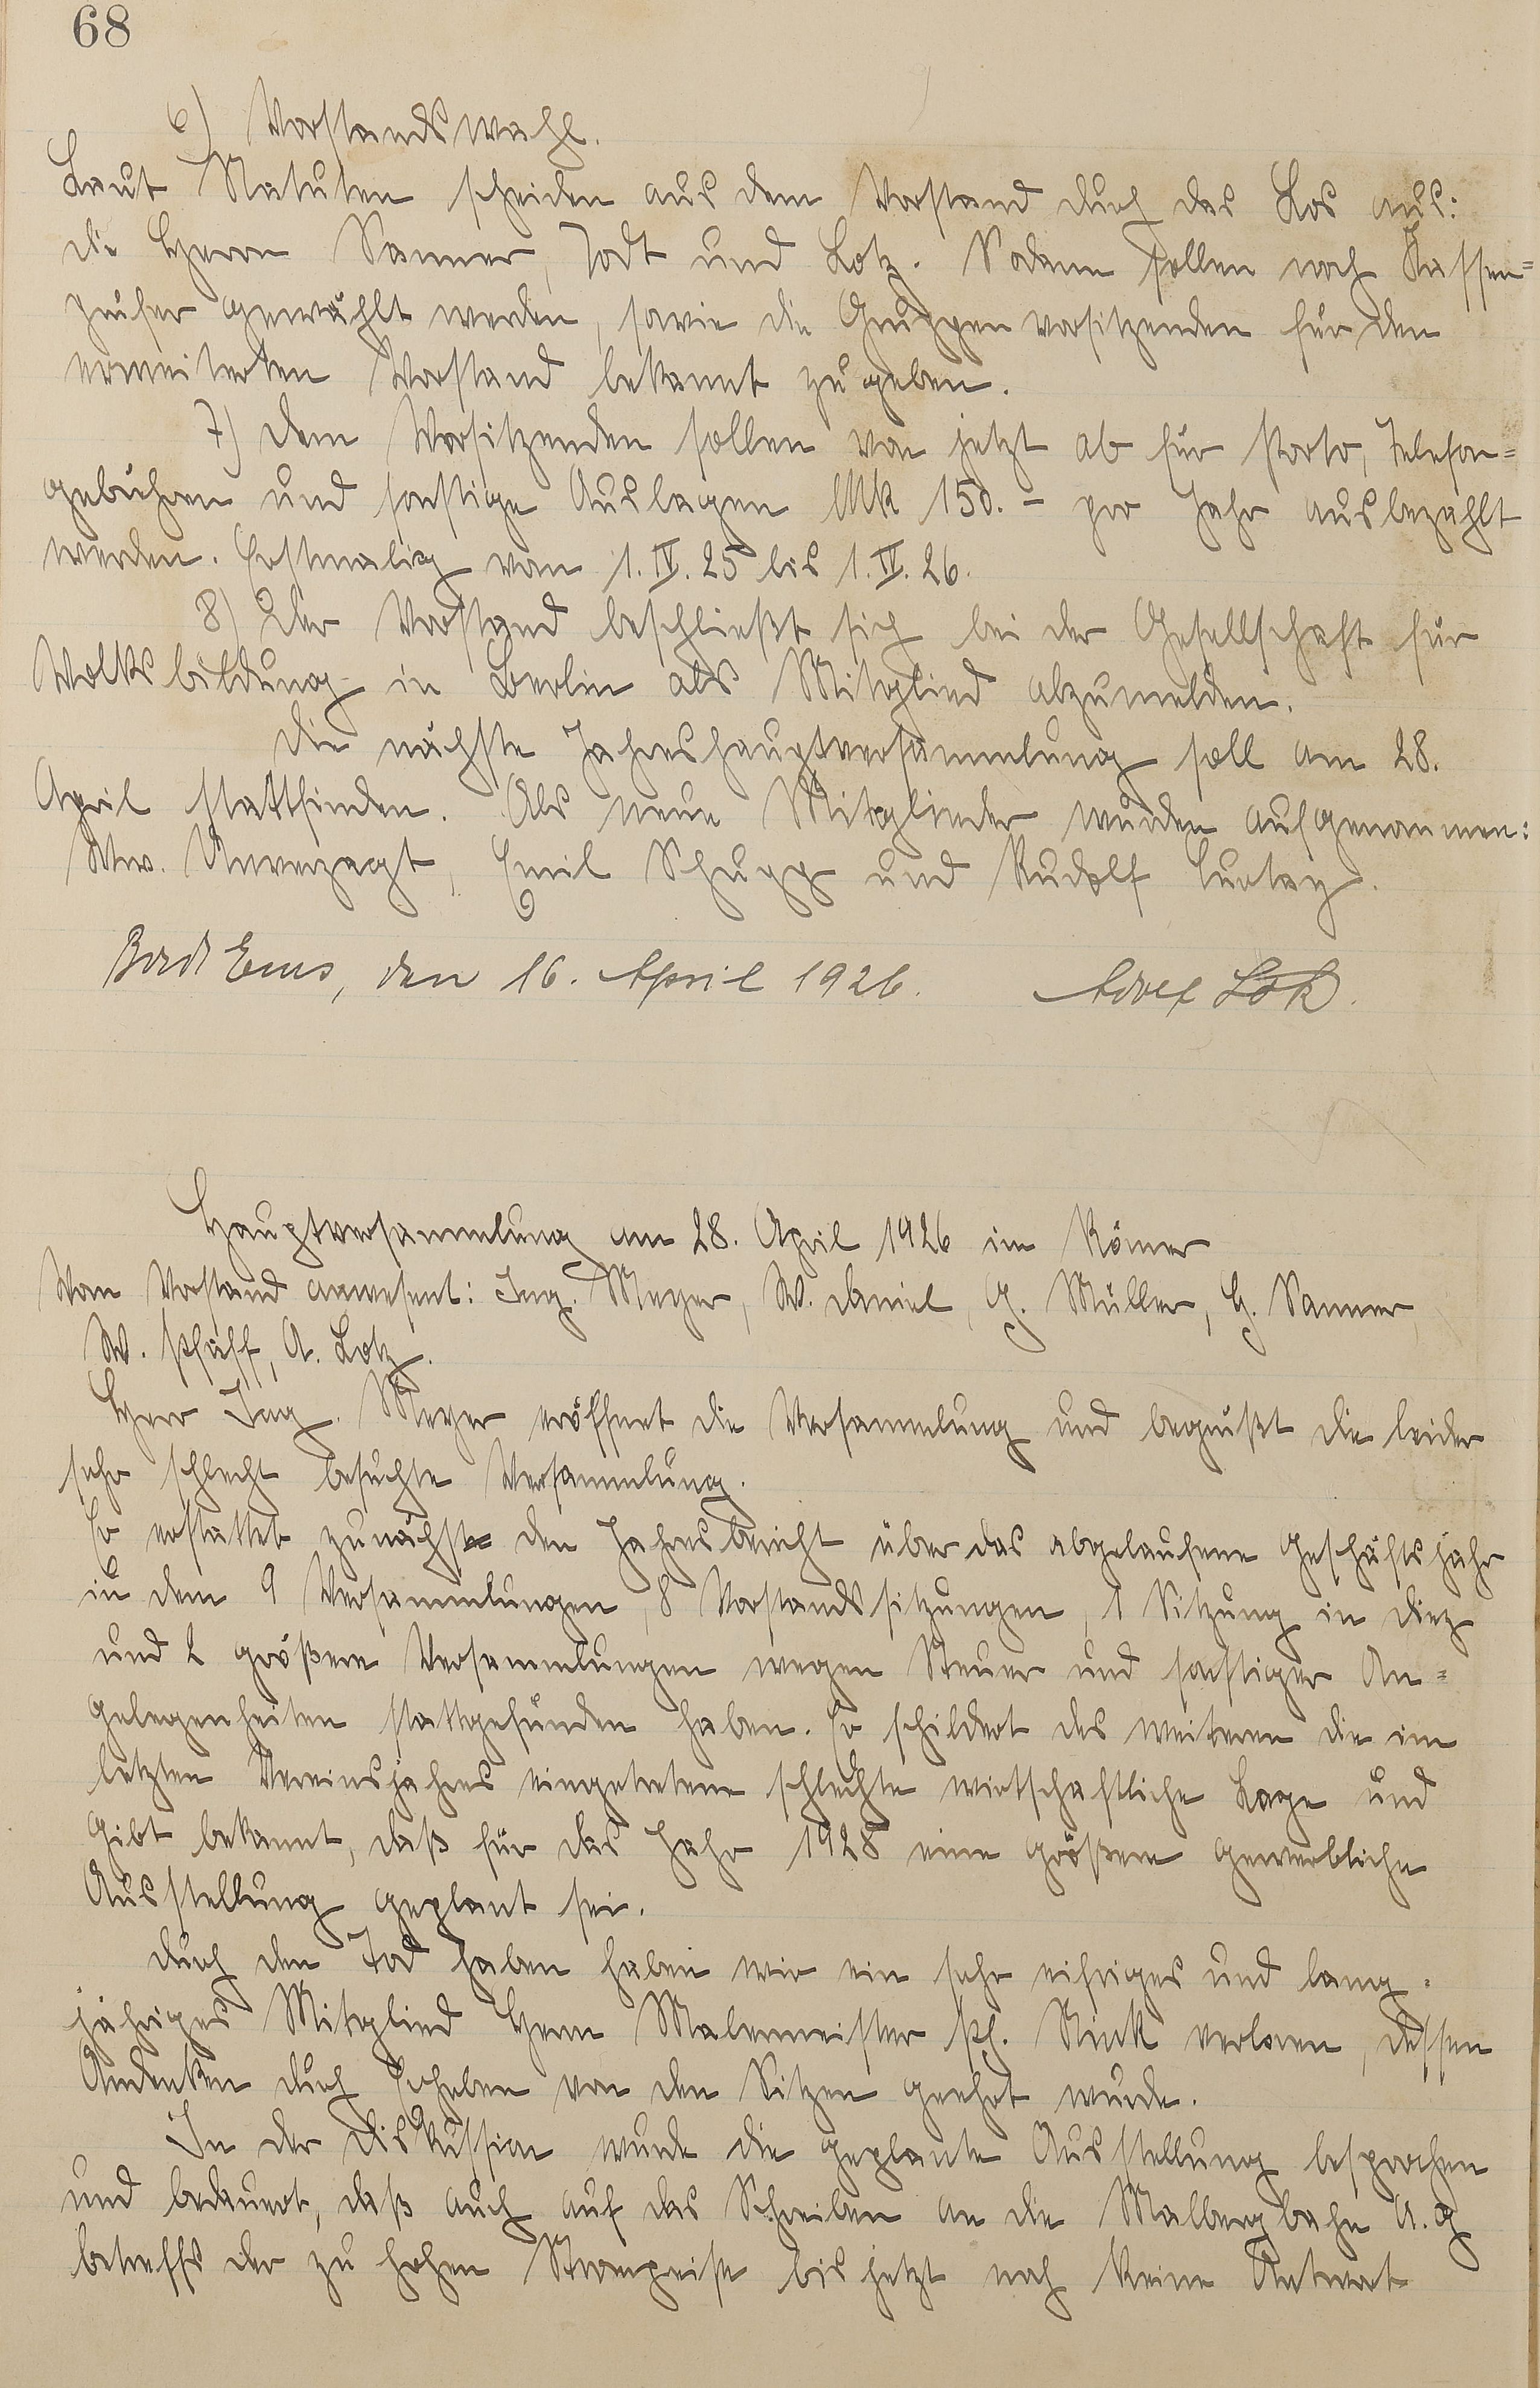 68
6) Vorstandswahl.
Laut Statuten scheiden aus dem Vorstand durch das Los aus:
die Herrn Sanner, Jodt und Lotz. Sodann sollen noch Kassen=
prüfer gewählt werden, sowie die Gruppenvorsitzenden für den
erweiterten Vorstand bekannt zu geben.
7) Dem Vorsitzenden sollen von jetzt ab für Porto, Telefon=
gebühren und sonstige Auslagen Mk 150.- pro Jahr ausbezahlt
werden. Erstmalig vom 1. IV. 25 bis 1. IV. 26.
8) Der Vorstand beschließt sich bei der Gesellschaft für
Volksbildung in Berlin als Mitglied abzumelden.
Die nächste Jahreshauptversammlung soll am 28.
April stattfinden. Als neue Mitglieder wurden aufgenommen:
Ww. Unverzagt, Emil Schupp und Rudolf
Bad Ems, den 16. April 1926. Adolf Lotz.
Hauptversammlung am 28. April 1926 im Römer
Vom Vorstand anwesent: Ing. Meyer, W. Daniel, G. Müller, G. Sanner,
W. Pfaff, A. Lotz.
Herr Ing. Meyer eröffnet die Versammlung und begrüßt die leider
sehr schlecht besuchte Versammlung.
Er erstattet zunächst den Jahresbericht über das abgelaufene Geschäftsjahr
in dem 9 Versammlungen, 8 Vorstandssitzungen, 1 Sitzung in Diez
und 2 größere Versammlungen wegen Steuer und sonstiger An=
gelegenheiten stattgefunden haben. Er schildert des weiteren die im
letzten Vereinsjahres eingetretene schlechte wirtschaftliche Lage und
gibt bekannt, daß für das Jahr 1928 eine größere gewerbliche
Ausstellung geplant sei.
Durch den Tod haben haben wir ein sehr eifriges und lang=
jähriges Mitglied Herrn Malermeister Ph. Stink verloren, dessen
Andenken durch Erheben von den Sitzen geehrt wurde.
In der Diskussion wurde die geplante Ausstellung besprochen
und bedauert, daß auch auf das Schreiben an die Malbergbahn A.G
betreffs der zu hohen Strompreise bis jetzt noch keine Antwort